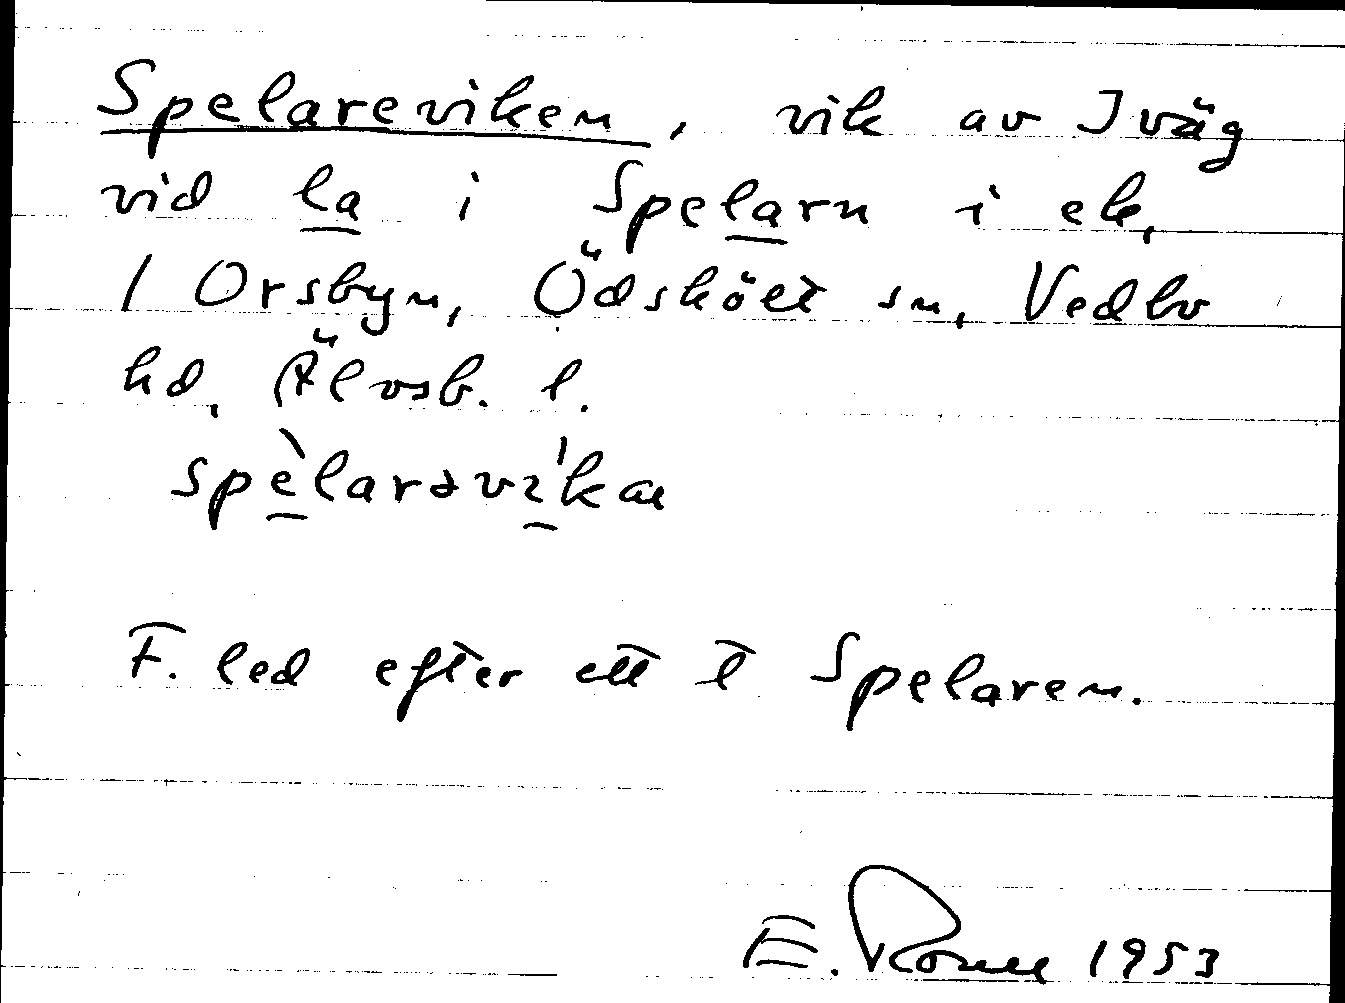 Spelareviken, vik av Iväg
vid la i Spelarn i ek,
/ Orsbyn, Ödskölt sn, Vedbo
hd, Älvsb. l.
spèlarəvi'kan
F. led efter ett t Spelaren.
E. 1953